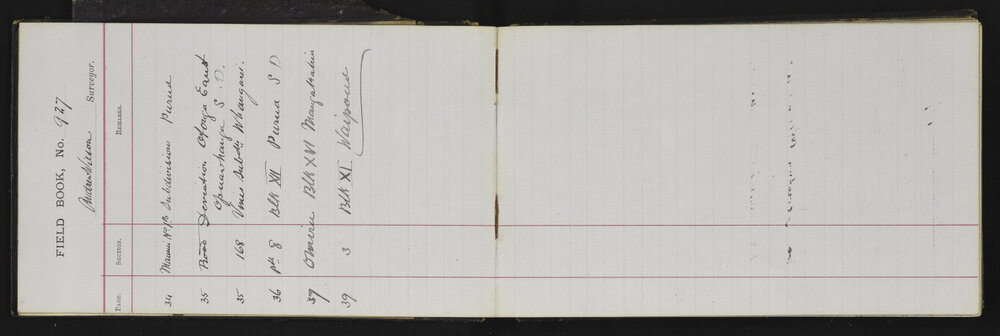 FIELD BOOK, No. 927
Andrew Wilson Surveyor.
PAGE. SECTION. REMARKS.
34 Maunu No 1B Subdivision Purua
35 Road Deviation Otonga East
Opuawhanga S.D.
35 168 Vines Subdn Whangarei
36 pt 8 Blk XII Purua S D
37 Omiru Blk XVI Mangakahia
39 3 Blk XI. Waipoua